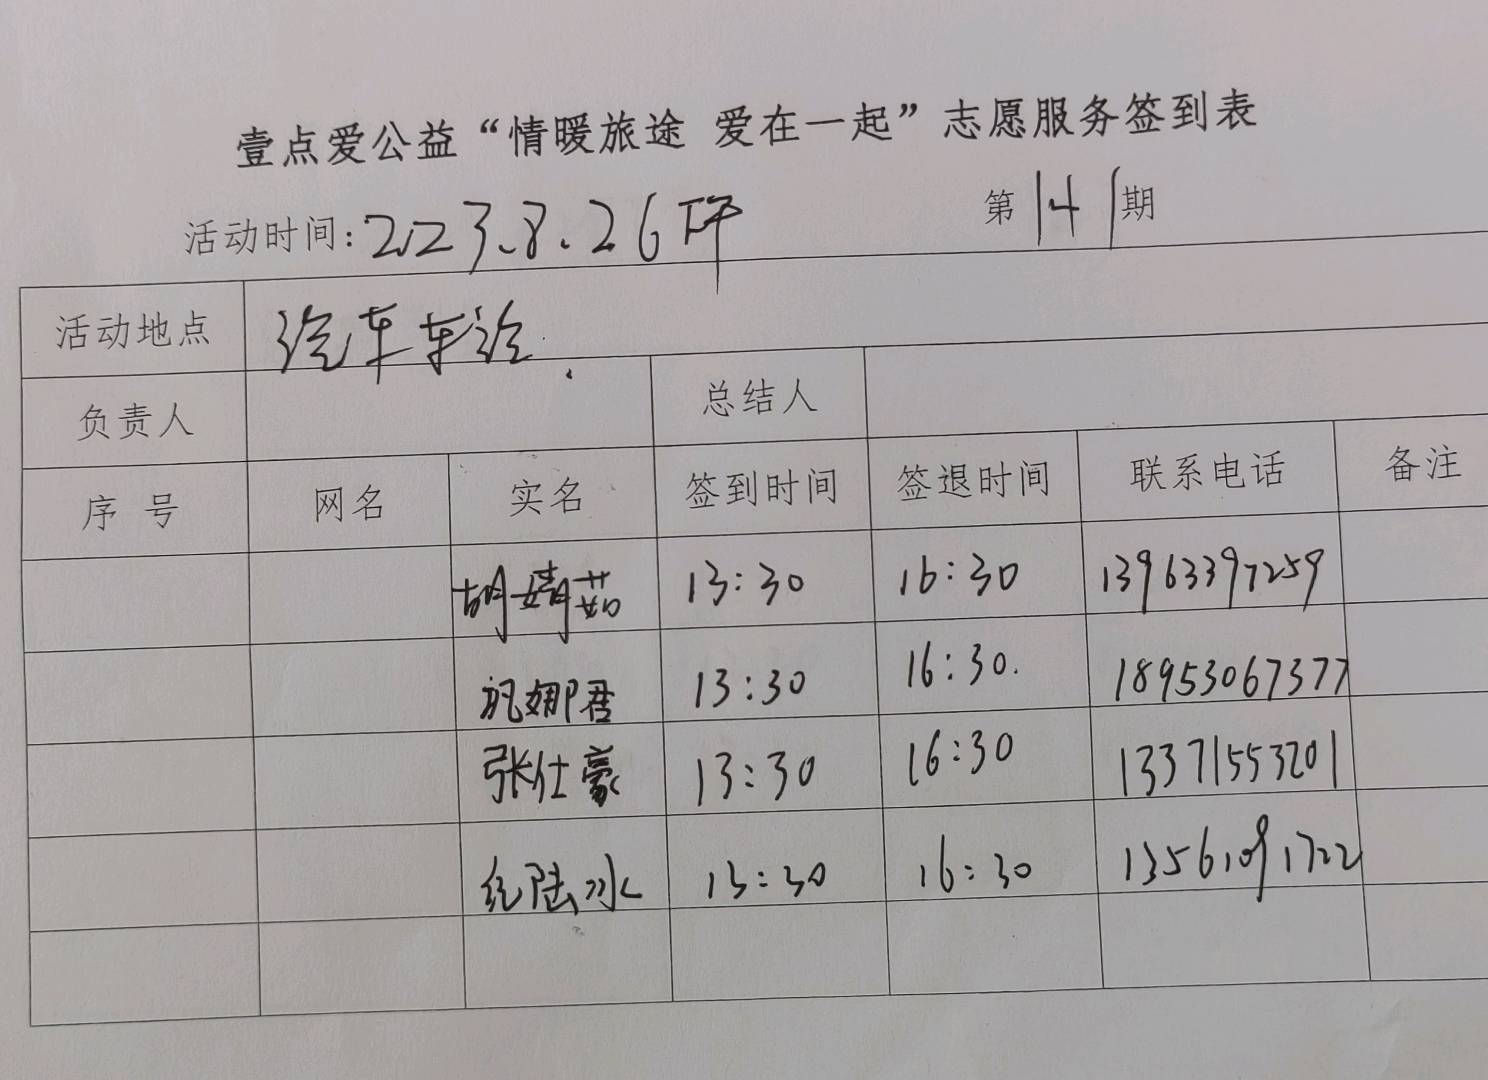 壹点爱公益“情暖旅途 爱在一起”志愿服务签到表
活动时间：2023.8.26下午 第141期
活动地点 汽车车站.
负责人 总结人
序 号 网名 实名 签到时间 签退时间 联系电话 备注
胡婧茹 13:30 16:30 13963397259
祝娜君 13:30 16:30. 18953067377
张仕豪 13:30 16:30 13371553201
纪陆冰 13:30 16:30 13561091722